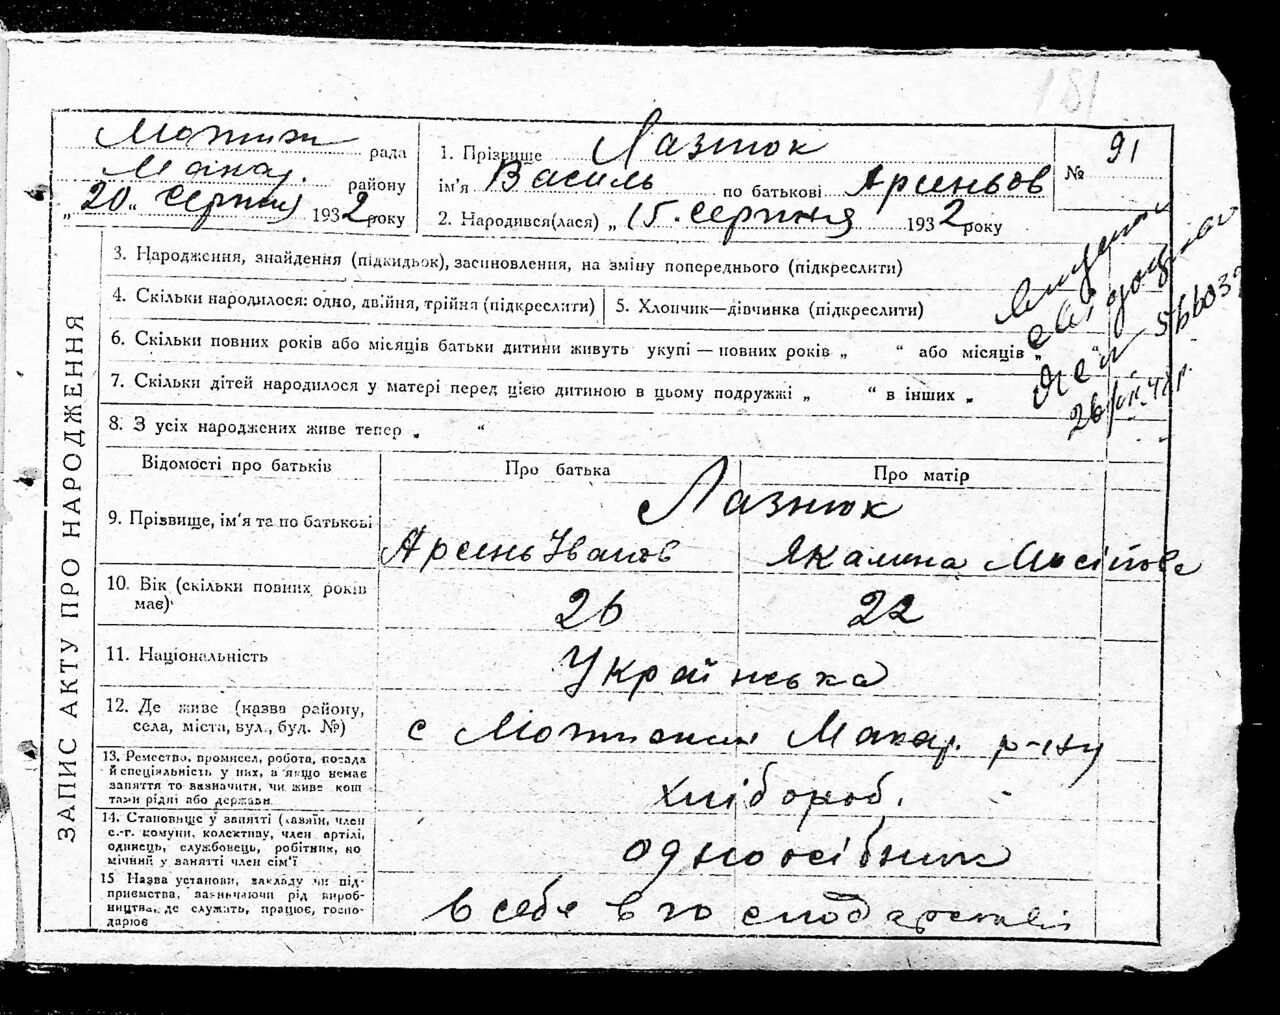 181
Мотижи рада
Макар. району
„20“ серпня 1932 року
1. Прізвище Лазнюк
ім'я Василь по батькові Арсеньов
2. Народився(лася) „15. серпня 1932 року
№ 91
3. Народження, знайдення (підкидьок), засиновлення, на зміну попереднього (підкреслити)
4. Скільки народилося: одно, двійня, трійня (підкреслити)
5. Хлопчик—дівчинка (підкреслити)
6. Скільки повних років або місяців батьки дитини живуть укупі — повних років „ “ або місяців „ “
7. Скільки дітей народилося у матері перед цією дитиною в цьому подружжі „ “ в інших „
8. З усіх народжених живе тепер „ “
566032
26/VII.48 р.
ЗАПИС АКТУ ПРО НАРОДЖЕННЯ
Відомості про батьків
Про батька
Про матір
9. Прізвище, ім'я та по батькові
Лазнюк
Арсень Іванов
Якалина
10. Вік (скільки повних років
має)
26
22
11. Національність
Українська
12. Де живе (назва району,
села, міста, вул., буд. №)
с Мотижин Макар. р-ну
13. Ремество, промисел, робота, посада
й спеціяльність у них, а якщо немає
заняття то зазначити, чи живе кош
тами рідні або держави
хлібороб.
14. Становище у занятті (хазяїн, член
с.-г. комуни, колективу, член артілі,
одинець, службовець, робітник, по
мічний у занятті член сім'ї
одноосібник
15 Назва установи, закладу чи під-
приємства, зазначаючи рід вироб-
ництва, де служать, працює, госпо-
дарює
в себе в господарстві